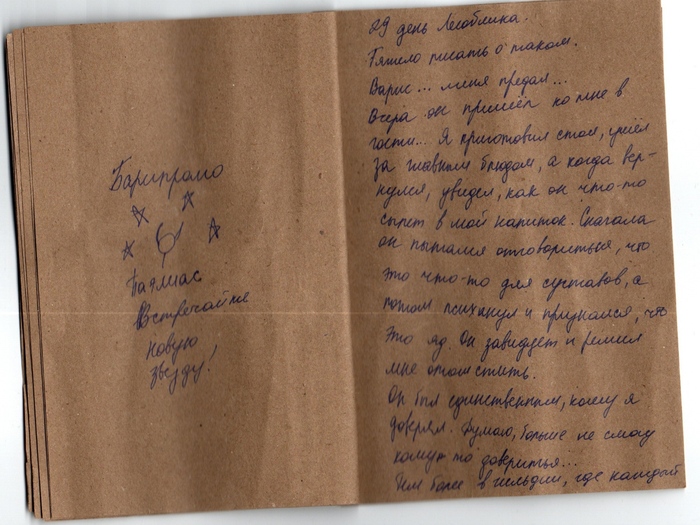 Барипрапо
Баэлиас
Встречайте
новую
звезду!
29 день Лесоблика.
Тяжело писать о таком.
Варис... меня предал...
Вчера он пришёл ко мне в
гости... Я приготовил стол, ушёл
за главным блюдом, а когда вер-
нулся, увидел, как он что-то
сыпет в мой напиток. Сначала
он пытался отговориться, что
это что-то для суставов, а
потом психнул и признался, что
это яд. Он завидует и решил
мне отомстить.
Он был единственным, кому я
доверял. Думаю, больше не смогу
кому-то довериться...
Тем более в гильдии, где каждый